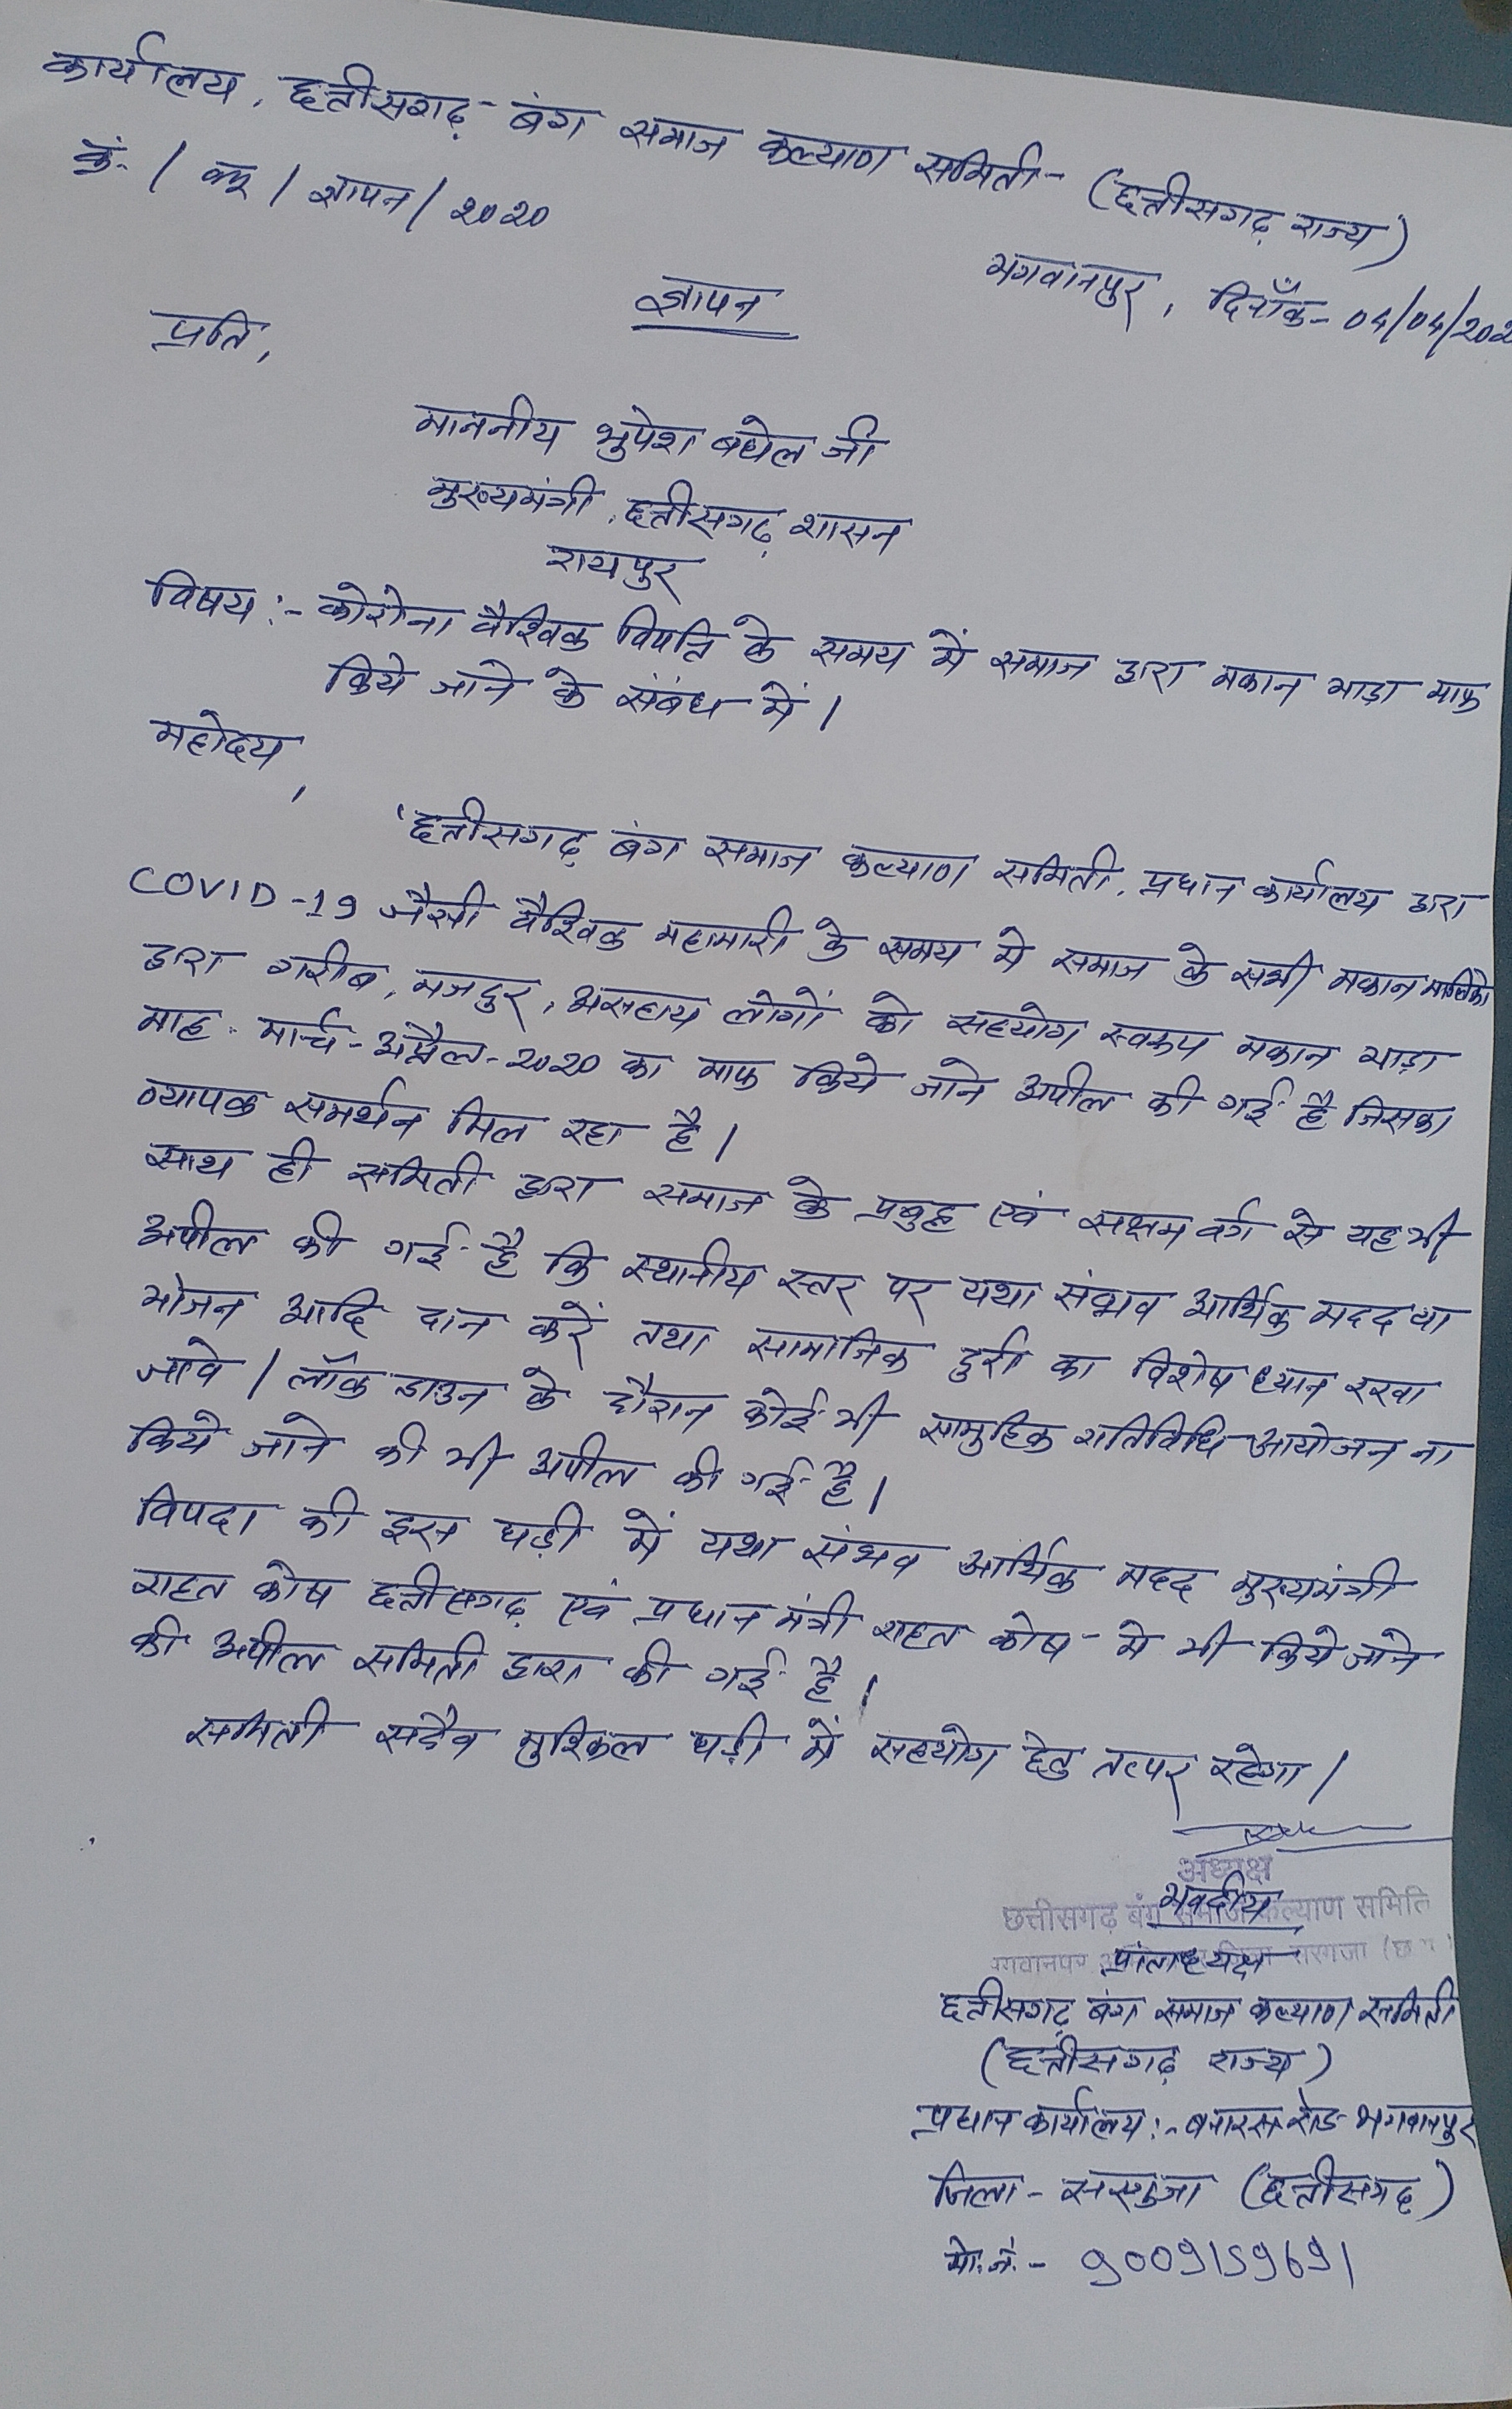 कार्यालय, छत्तीसगढ़- बंग समाज कल्याण समिती- (छत्तीसगढ़ राज्य)
क्रं- / क्यू / ज्ञापन / 2020
भगवानपुर, दिनाँक- 04/04/202
ज्ञापन
प्रति,
माननीय भुपेश बघेल जी
मुख्यमंत्री, छत्तीसगढ़ शासन
रायपुर
विषय :- कोरोना वैश्विक विपत्ति के समय में समाज द्वारा मकान भाड़ा माफ
किये जाने के संबंध में।
महोदय,
'छत्तीसगढ़ बंग समाज कल्याण समिती, प्रधान कार्यालय द्वारा
COVID-19 जैसी वैश्विक महामारी के समय मे समाज के सभी मकान मालिको
द्वारा गरीब, मजदुर, असहाय लोगों को सहयोग स्वरूप मकान भाड़ा
माह- मार्च-अप्रैल-2020 का माफ किये जाने अपील की गई है जिसका
व्यापक समर्थन मिल रहा है।
साथ ही समिती द्वारा समाज के प्रबुद्ध एवं सक्षम वर्ग से यह भी
अपील की गई है कि स्थानीय स्तर पर यथा संभव आर्थिक मदद या
भोजन आदि दान करें तथा सामाजिक दुरी का विशेष ध्यान रखा
जावे। लॉक डाउन के दौरान कोई भी सामुहिक गतिविधि आयोजन ना
किये जाने की भी अपील की गई है।
विपदा की इस घड़ी में यथा संभव आर्थिक मदद मुख्यमंत्री
राहत कोष छत्तीसगढ़ एवं प्रधान मंत्री राहत कोष मे भी किये जाने
की अपील समिती द्वारा की गई है।
समिती सदैव मुश्किल घड़ी में सहयोग हेतु तत्पर रहेगा।
अध्यक्ष
भवदीय
छत्तीसगढ़ बंग समाज कल्याण समिति
प्रांताध्यक्ष
छत्तीसगढ़ बंग समाज कल्याण समिती
(छत्तीसगढ़ राज्य)
प्रधान कार्यालय :- बनारस रोड भगवानपुर
जिला - सरगुजा (छत्तीसगढ़)
मो. नं. - 9009159691